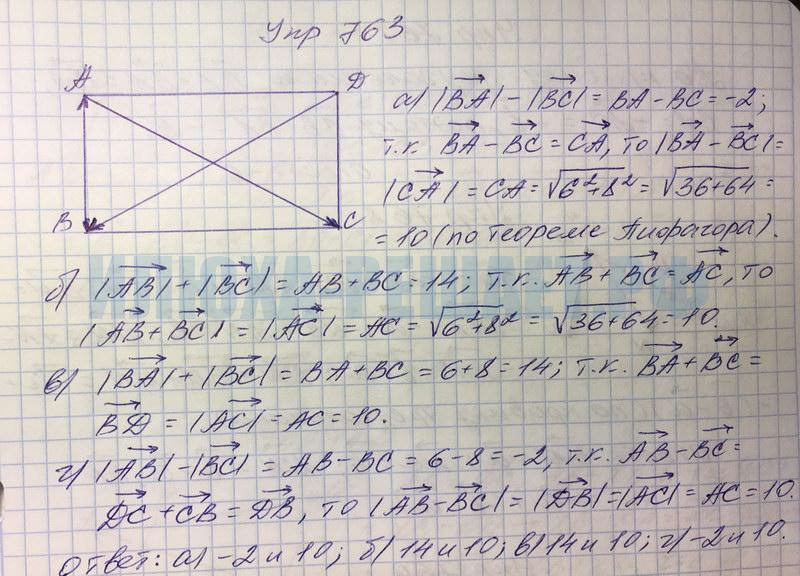 Упр 763
A D
B C
а) |BA| - |BC| = BA - BC = -2;
т.к. BA - BC = CA, то |BA - BC| =
|CA| = CA = √6²+8² = √36+64 =
= 10 (по теореме Пифагора).
б) |AB| + |BC| = AB + BC = 14; т.к. AB + BC = AC, то
|AB + BC| = |AC| = AC = √6²+8² = √36+64 = 10.
в) |BA| + |BC| = BA + BC = 6 + 8 = 14; т.к. BA + BC =
BD = |AC| = AC = 10.
г) |AB| - |BC| = AB - BC = 6 - 8 = -2, т.к. AB - BC =
DC + CB = DB, то |AB - BC| = |DB| = |AC| = AC = 10.
ответ: а) -2 и 10; б) 14 и 10; в) 14 и 10; г) -2 и 10.